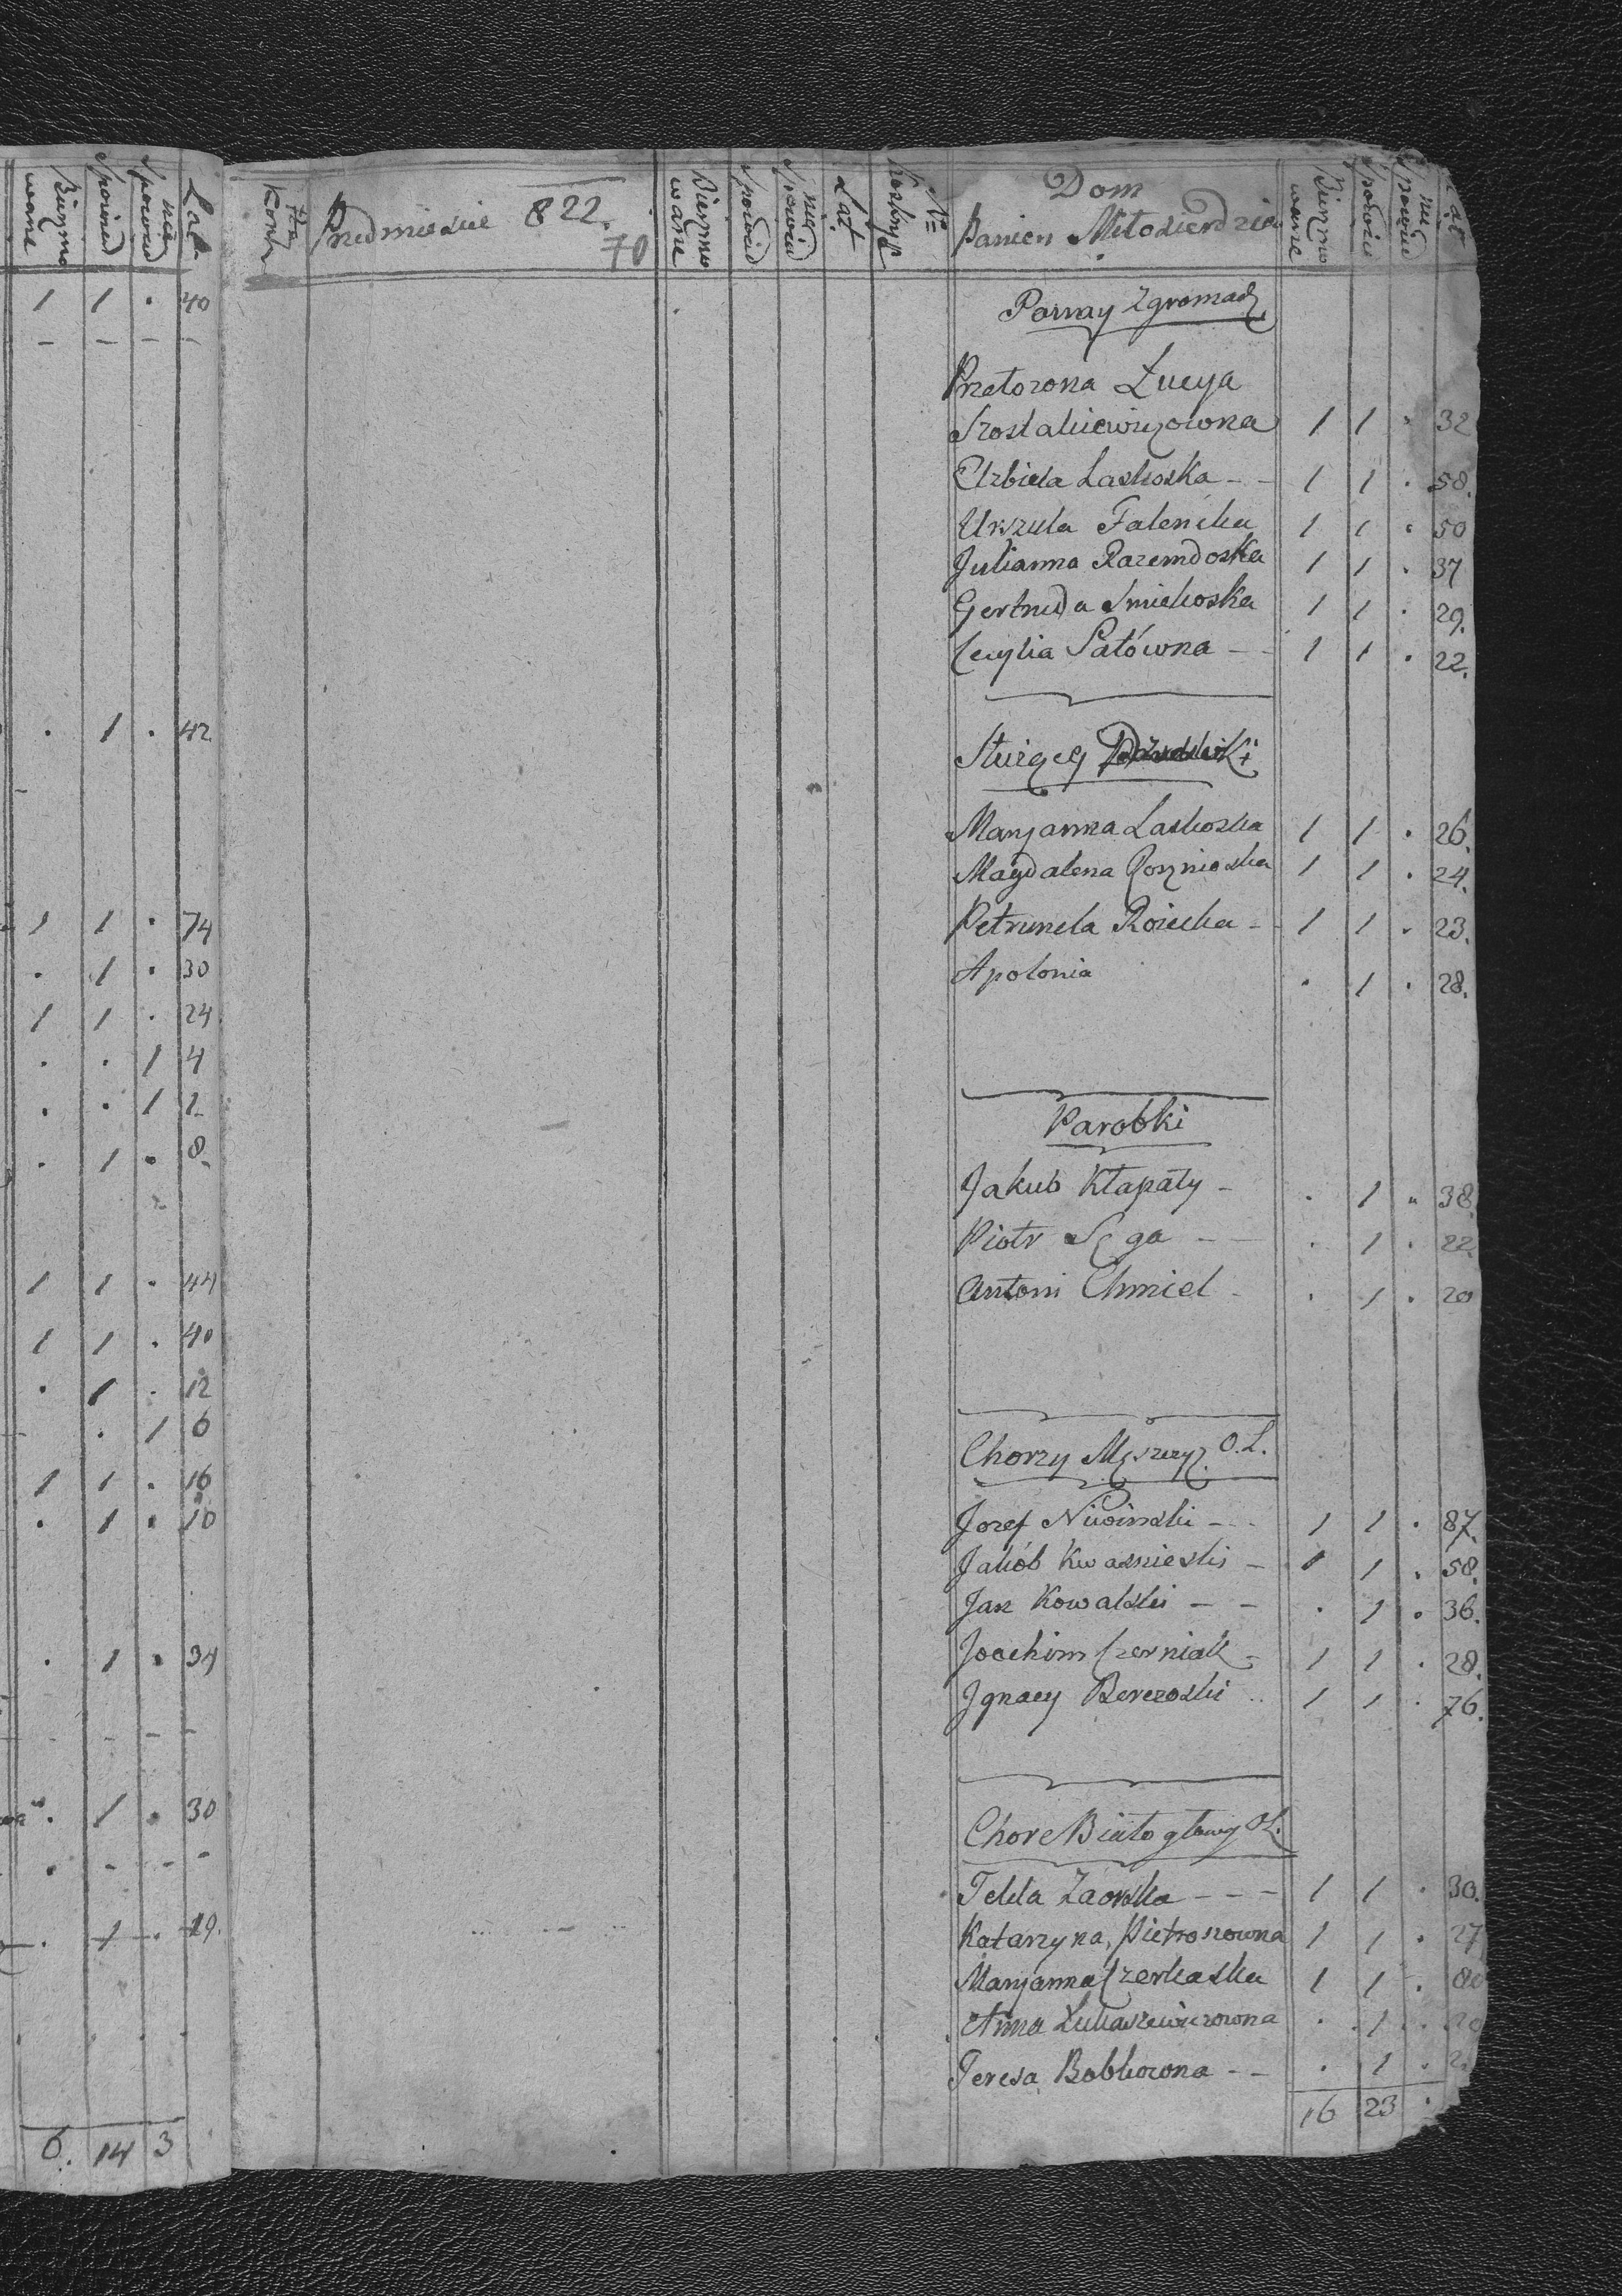 Bierzmo wane | Spowied | nie Spowied | Lat
1 1 . 40
- - - -
. 1 . 42
1 1 . 74
. 1 . 30
1 1 . 24
. . 1 4
. . 1 2
. 1 . 8
1 1 . 44
1 1 . 40
. 1 . 12
. 1 6
1 1 . 16
. 1 . 10
. 1 . 34
- - -
. 1 . 30
. - - -
. 1 . 19.
6. 14 3
Przedmiescie 822.
70
Bierzmo wane | Spowied | nie Spowied | Lat
N=
Dom
Panien Miłosierdzia
Bierzmo wane | Spowied | nie Spowied | Lat
Panny Zgromadz
Przełozona Łucya
Szostakiewiczowna 1 1 . 32
Elzbieta Laskoska - - 1 1 . 58.
Urszula Falencka 1 1 . 50
Julianna Razemdoska 1 1 . 37
Gertruda Smiekoska 1 1 . 29.
Cecylia Sałówna - - 1 1 . 22.
Służący
Maryanna Laskoska 1 1 . 26.
Magdalena Roznioska 1 1 . 24.
Petrunela Rozicka - 1 1 . 23.
Apolonia . 1 . 28.
Parobki
Jakub Kłapaty - . 1 . 38.
Piotr Sęga - - . 1 . 22.
Antoni Chmiel - . 1 . 20
Chorzy Męszczyz. O.Ł.
Jozef Niwinski - - 1 1 . 87.
Jakób Kwasnieski - 1 1 . 58.
Jan Kowalski - - . 1 . 36.
Joachim Czerniak - 1 1 . 28.
Jgnacy Berezoski .. 1 1 . 76.
Chore Białogłowy OŁ.
Tekla Zaorska - - - 1 1 . 30.
Katarzyna Pietroszowna 1 1 . 27
Maryanna Czerkaska 1 1 . 80
Anna Łukaszewiczowna . 1 . 20
Teresa Bobkowna - - . 1 . 2
16 23 .